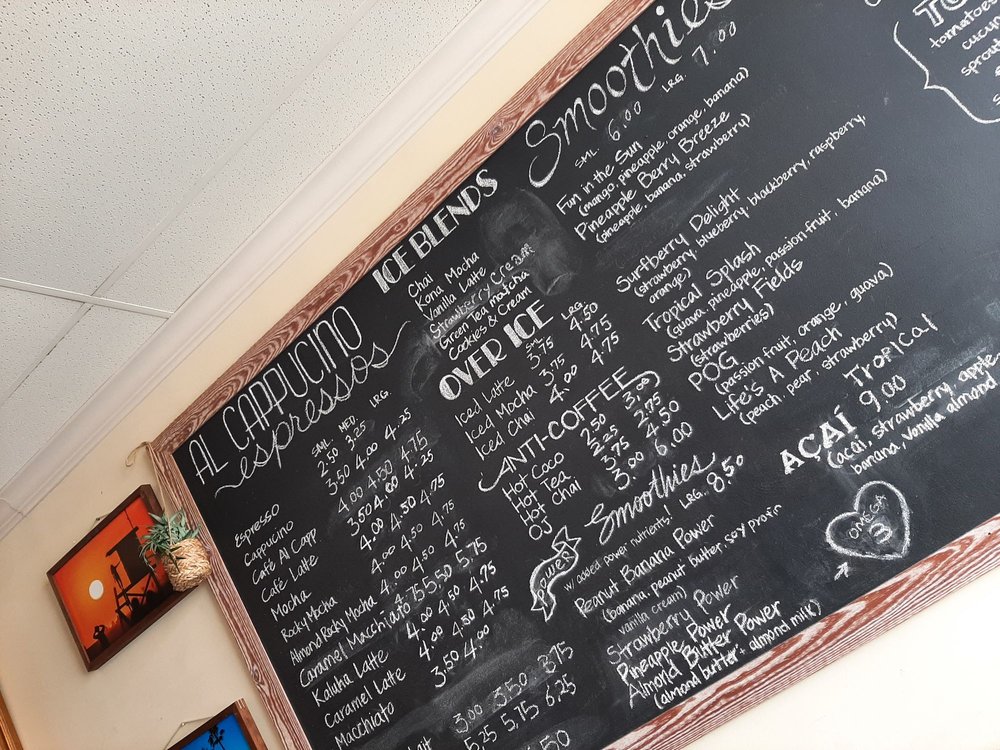 AL CAPPUCINO
espressos
SML. MED. LRG.
Espresso 2.50 3.25
Cappucino 3.50 4.00 4.25
Café Al Capp 4.00 4.50 4.75
Café Latte 3.50 4.00 4.25
Mocha 4.00 4.50 4.75
Rocky Mocha 4.00 4.50 4.75
Almond Rocky Mocha 4.00 4.50 4.75
Caramel Macchiato 4.75 5.50 5.75
Kaluha Latte 4.00 4.50 4.75
Caramel Latte 4.00 4.50 4.75
Macchiato 3.50 4.00
3.00 3.50 3.75
5.25 5.75 6.25
ICE BLENDS
Chai
Kona Mocha
Vanilla Latte
Strawberry Cream
Green tea matcha
Cookies & Cream
OVER ICE
SML. LRG.
Iced Latte 3.75 4.50
Iced Mocha 3.75 4.75
Iced Chai 4.00 4.75
ANTI-COFFEE
Hot Coco 2.50 3.00
Hot Tea 2.25 2.75
Chai 3.75 4.50
OJ 3.00 6.00
Smoothies
SML. 6.00 LRG. 7.00
Fun in the Sun
(mango, pineapple, orange, banana)
Pineapple Berry Breeze
(pineapple, banana, strawberry)
Surfberry Delight
(strawberry, blueberry, blackberry, raspberry,
orange)
Tropical Splash
(guava, pineapple, passion fruit, banana)
Strawberry Fields
(strawberries)
POG
(passion fruit, orange, guava)
Life's A Peach
(peach, pear, strawberry)
Power Smoothies
w/ added power nutrients! LRG. 8.50
Peanut Banana Power
(banana, peanut butter, soy protin
vanilla cream)
Strawberry Power
Pineapple Power
Almond Butter Power
(almond butter + almond milk)
AÇAÍ TROPICAL
9.00
(acai, strawberry, apple
banana, vanilla almond
OMEGA
3
tomatoes
cucu
sprout